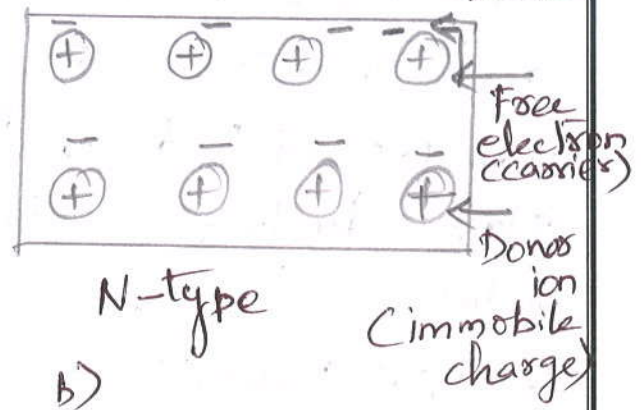 − − − −
+ + + +
Free
electron
(carrier)
− − − −
+ + + +
Donor
ion
(immobile
charge)
N-type
b)